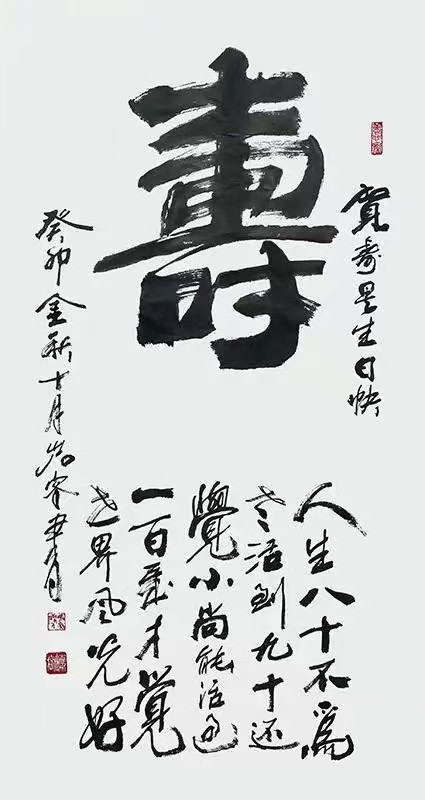 壽
賀壽星生日快
人生八十不爲
老活到九十还
覺小尚能活過
一百歲才覺
世界風光好
癸卯金秋十月